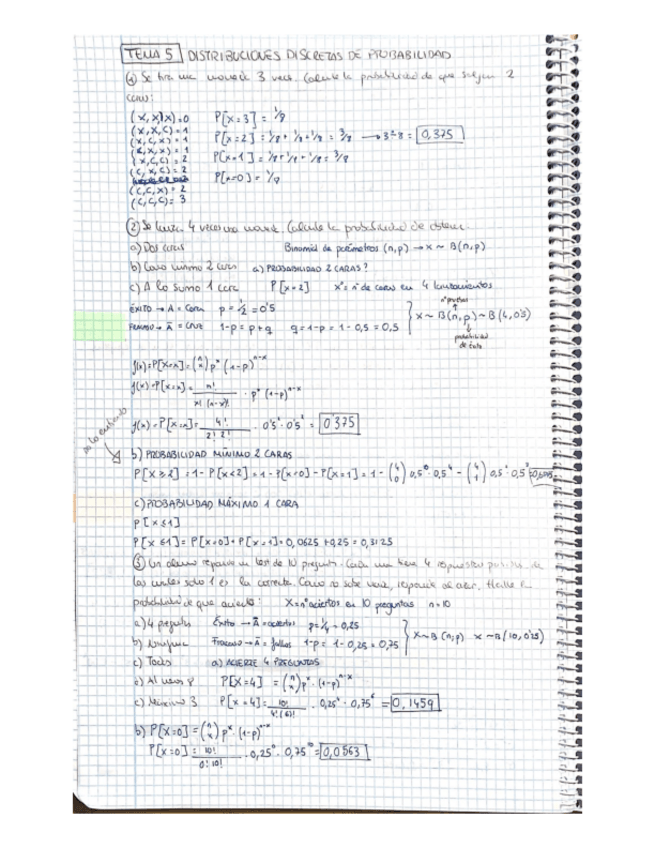 TEMA 5 | DISTRIBUCIONES DISCRETAS DE PROBABILIDAD
① Se tira una moneda 3 veces. Calcule la probabilidad de que salgan 2
caras:
(X, X, X) = 0   P[x=3] = 1/8
(X, X, C) = 1
(X, C, X) = 1   P[x=2] = 1/8 + 1/8 + 1/8 = 3/8 → 3÷8 = 0,375
(C, X, X) = 1
(X, C, C) = 2   P[x=1] = 1/8 + 1/8 + 1/8 = 3/8
(C, X, C) = 2   P[x=0] = 1/8
(C, C, X) = 2
(C, C, C) = 3
② Se lanza 4 veces una moneda. Calcule la probabilidad de obtener.
a) Dos caras   Binomial de parámetros (n,p) → x ~ B(n,p)
b) Como mínimo 2 caras   a) PROBABILIDAD 2 CARAS?
c) A lo sumo 1 cara   P[x=2]   x = nº de caras en 4 lanzamientos
ÉXITO → A = Cara   p = 1/2 = 0'5   nº pruebas
FRACASO → A̅ = CRUZ   1-p = p+q   q = 1-p = 1-0,5 = 0,5   x ~ B(n,p) ~ B(4,0'5)
probabilidad
de éxito
f(x) = P[X=x] = (n x) p^x (1-p)^n-x
f(x) = P[X=x] = n! / x! (n-x)! · p^x (1-p)^n-x
f(x) = P[X=x] = 4! / 2! 2! · 0'5² · 0'5² = 0'375
b) PROBABILIDAD MÍNIMO 2 CARAS
P[X≥2] = 1 - P[x<2] = 1 - P[x=0] - P[x=1] = 1 - (4 0) 0,5⁰ · 0,5⁴ - (4 1) 0,5¹ · 0,5³
c) PROBABILIDAD MÁXIMO 1 CARA
P[x≤1]
P[x≤1] = P[x=0] + P[x=1] = 0,0625 + 0,25 = 0,3125
③ Un alumno responde un test de 10 preguntas. Cada una tiene 4 respuestas posibles de
las cuales solo 1 es la correcta. Como no sabe nada, responde al azar. Halle la
probabilidad de que acierte:   X = nº aciertos en 10 preguntas   n = 10
a) 4 preguntas   Éxito → A = aciertos   p = 1/4 = 0,25
b) Ninguna   Fracaso → A̅ = fallos   1-p = 1-0,25 = 0,75   X ~ B(n,p)   x ~ B(10, 0'25)
c) Todas   a) ACIERTE 4 PREGUNTAS
d) Al menos   P[X=4] = (n x) p^x · (1-p)^n-x
e) Máximo 3   P[x=4] = 10! / 4! (6)! · 0,25⁴ · 0,75⁶ = 0,1459
b) P[X=0] = (n x) p^x · (1-p)^n-x
P[x=0] = 10! / 0! 10! · 0,25⁰ · 0,75¹⁰ = 0,0563